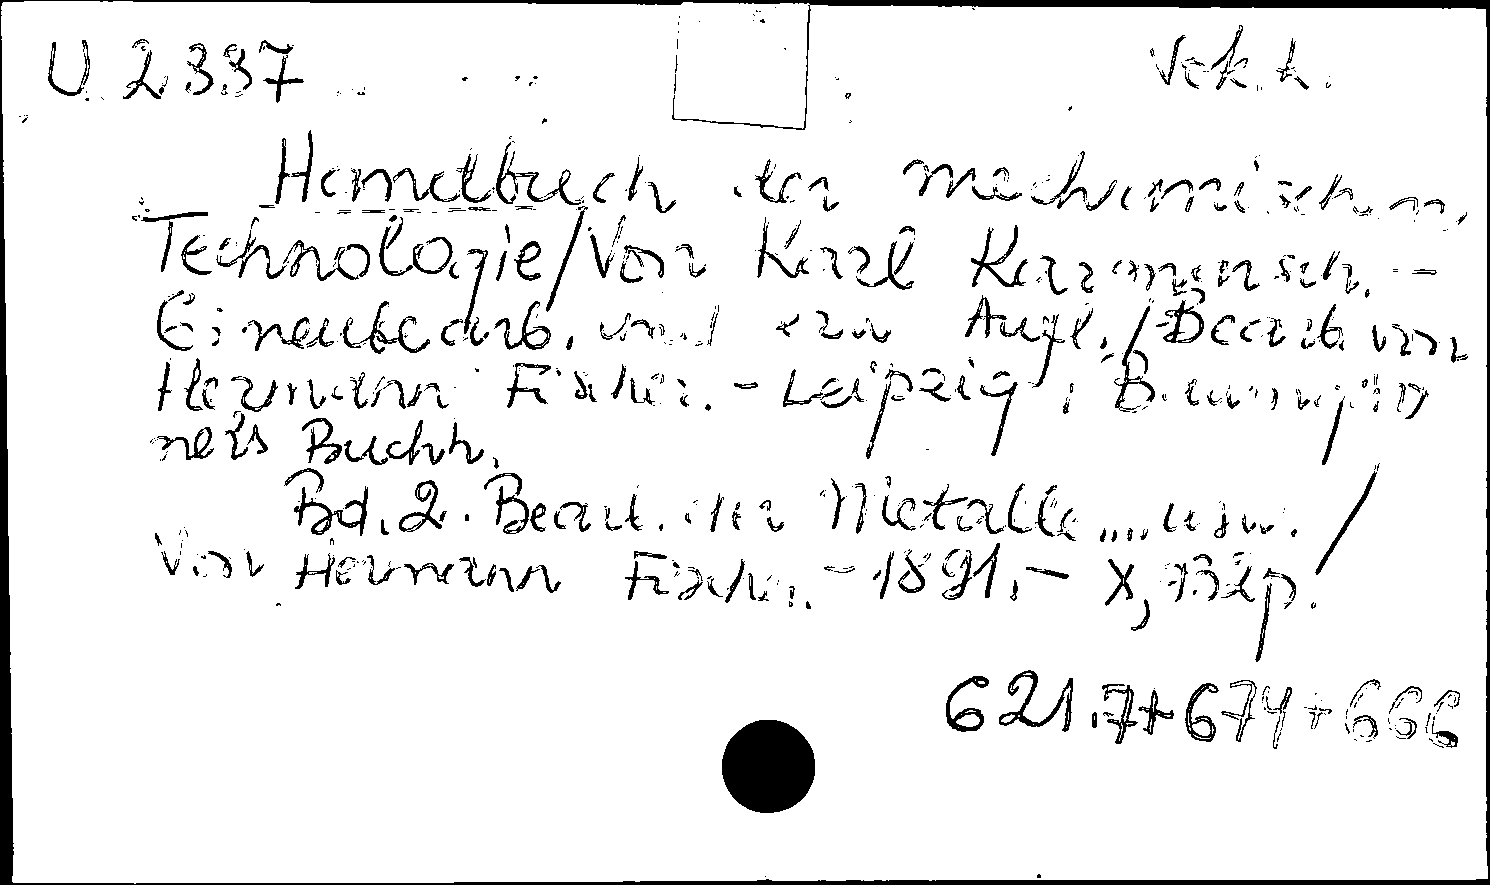 U 2337 Vsk. h.
Handbuch der mechanischen
Technologie/Von Karl Karmarsch. -
6; neubearb. und erw Aufl./Bearb. von
Hermann Fischer. - Leipzig : Baumgärt
ners Buchh.
Bd. 2. Bearb. der Metalle .... usw. /
Von Hermann Fischer. - 1891. - X, 732p.
621.7+674+666